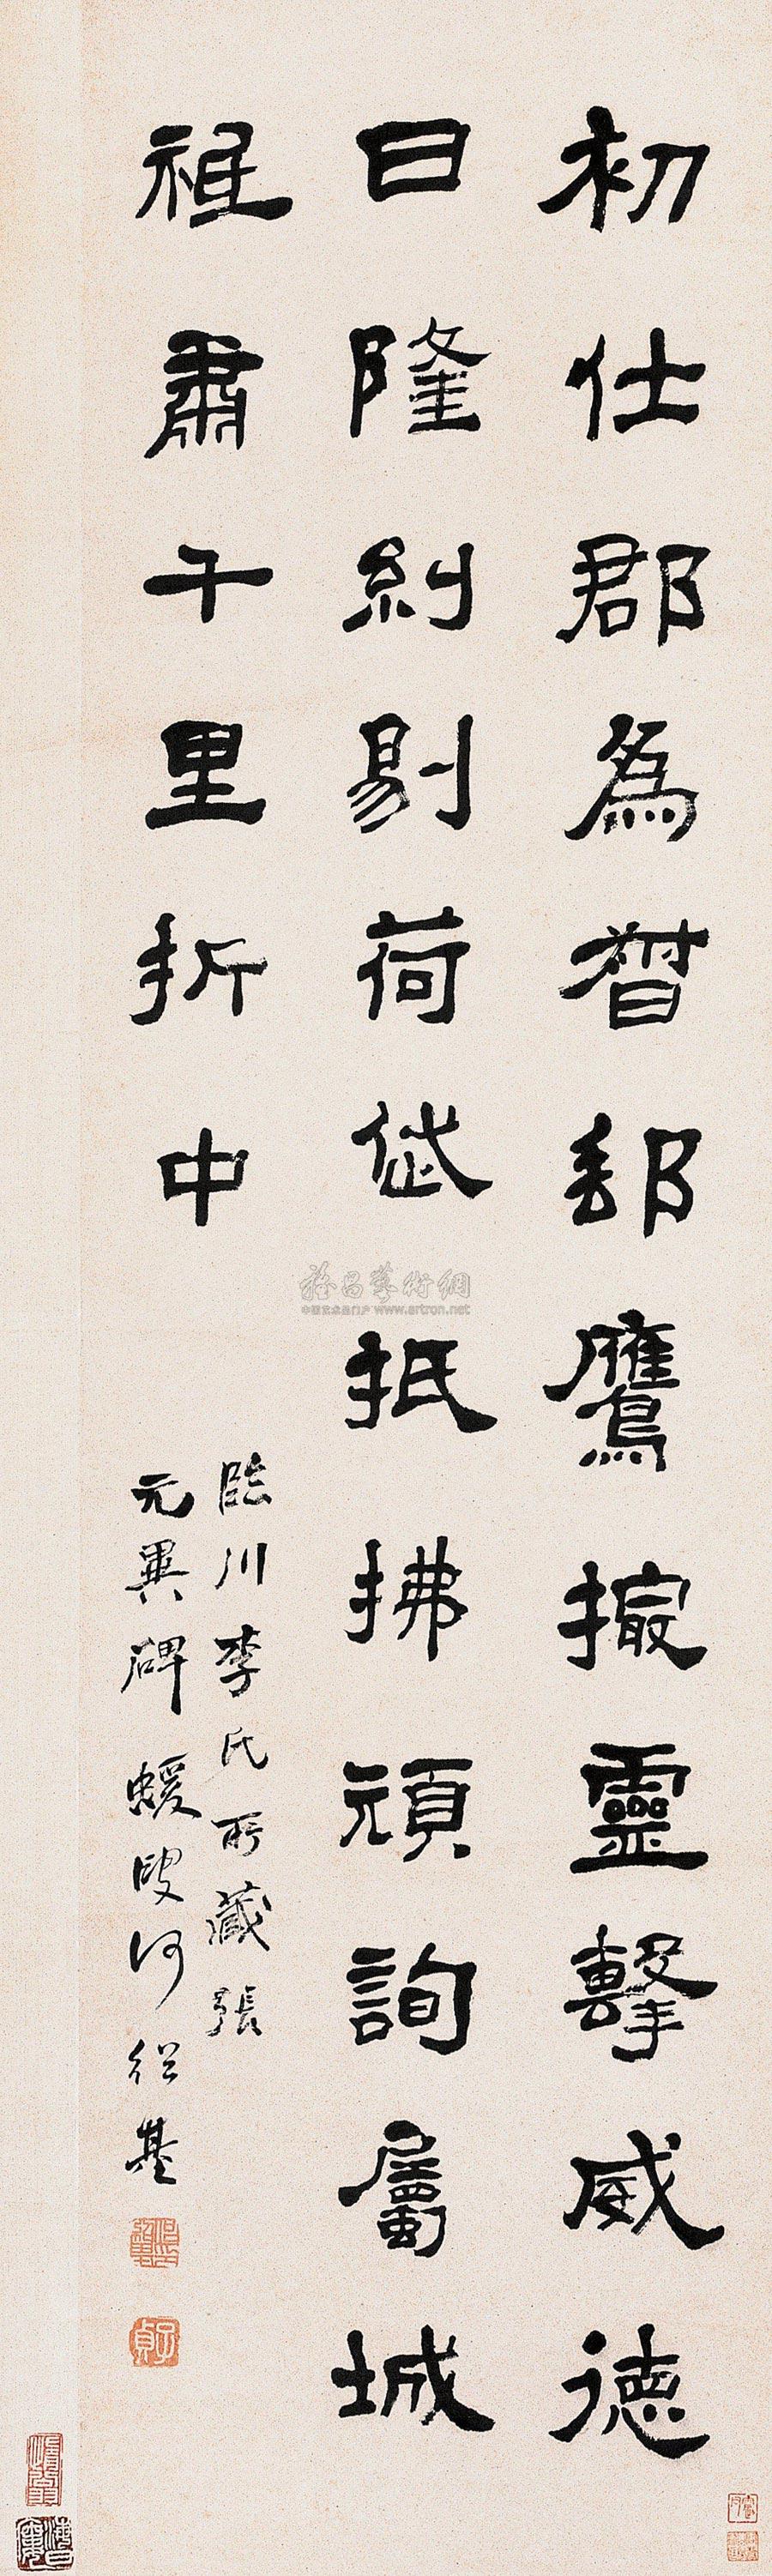 初仕郡為督郵鷹撮靈擊威德
日隆糾剔荷抵拂頑詢屬城
肅千里折中
臨川李氏所藏張
元異碑 蝯叟何紹基
子貞
雅昌藝術網
中国艺术品门户 www.artron.net